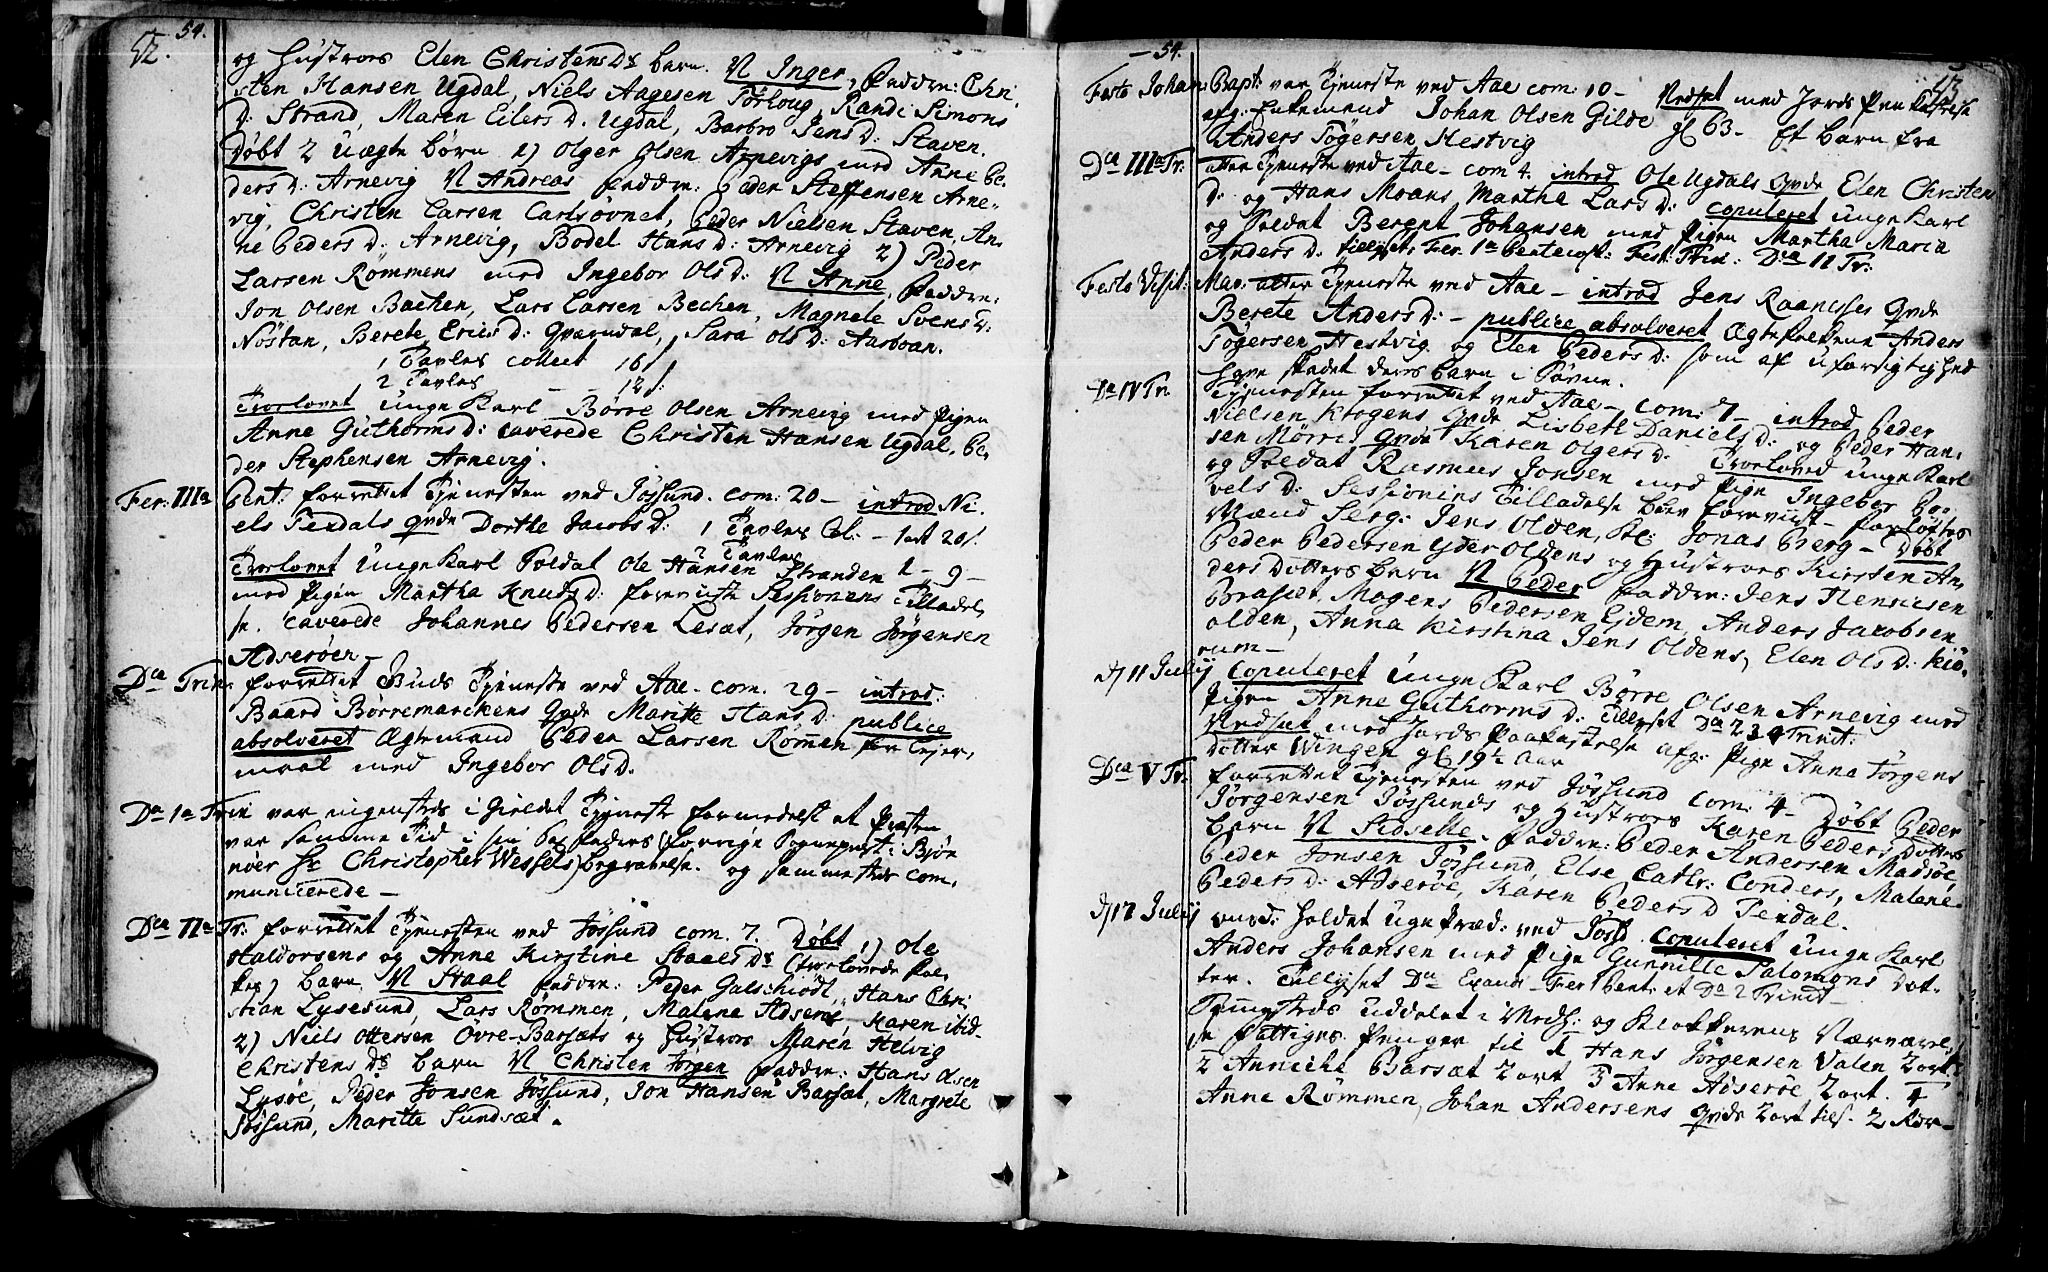 52. 54.
og Hustrues Elen Christens Ds barn. N Inger, Faddre: Chri-
sten Hansen Ugdal, Niels Aagesen Sørloug, Randi Simons
D: Strand, Maren Eilers D. Ugdal, Barbro Jens D: Staven.
Døbt 2 uægte børn 1) Olger Olsen Arnevigs med Anne Pe-
ders D: Arnevig N Andreas Faddre: Peder Steffensen Arne-
vig, Christen Larsen Carlsøvnet, Peder Nielsen Staven, An-
ne Peders D: Arnevig, Bodel Hans D: Arnevig 2) Peder
Larsen Rømmens med Ingebor Ols D: N Anne, Faddre:
Jon Olsen Bachen, Lars Larsen Bechen, Magnele Svens D:
Nøstan, Berete Erics D: Qværndal, Sara Ols D: Aarboan.
1 Tavles collect 16 s
2 Tavles — 12 s:
Trorlovet Unge Karl Børre Olsen Arnevig med Pigen
Anne Guthorms D: caverede Christen Hansen Ugdal, Pe-
der Stephensen Arnevig.
Fer: IIIa Pent: forrettet Tjenesten ved Jøssund. com: 20 — introd Ni-
els Texdals Qvde Dorthe Jacobs D: 1 Tavles Col: — 1 ort 20 s.
2 Tavles
Trorlovet Unge Karl Soldat Ole Hansen Stranden 1 - 9 -
med Pigen Martha Knuds D: foreviiste Sessionens Tilladel-
se. caverede Johannes Pedersen Lesæt, Jørgen Jørgensen
Adserøen —
Dca Trin: forrettet Buds Tjeneste ved Aae — com. 29 — introd:
Baard Børremarckens Qvde Maritte Hans D: publice
absolveret Ægtemand Peder Larsen Rømmen for Lejer-
maal med Ingebor Ols D.
Da 1a Trin var ingensteds i Gieldet Tjeneste formedelst at Præsten
var samme Tid i sin (forrige Sognepræst i Bjør-
nøer Hr Christopher Wessels) begravelse. og sammesteds com-
municerede —
Dca IIa Tr: forrettet Tjenesten ved Jøssund com. 7. Døbt 1) Ole
Haldorsens og Anne Kirstine Staals Ds (Trorlovede Fol-
kes) barn N Staal Faddre: Peder Galschiødt, Hans Chri-
stian Lysesund, Lars Rømmen, Malene Adserø, Karen ibid-
2) Niels Ottersen Øvre-Barsæts og Hustrues Maren Helvig
Christens Ds barn N Christen Jørgen Faddre: Hans Olsen
Lysøe, Peder Jonsen Jøssund, Jon Hansen Barsæt, Margrete
Jøssund, Maritte Sundsæt.
— 54. 53
Festo Johan: Bapt: var Tjeneste ved Aae com: 10 — Nedset med Jords Paakastelse
afg: Enkemand Johan Olsen Gilde gl 63 — Et barn fra
Anders Tøgersen Hestvig
Dca IIIa Tr: atter Tjeneste ved Aae — com 4. introd Ole Ugdals Qvde Elen Christens
D: og Hans Moans Marthe Lars D: copuleret Unge Karl
og Soldat Berent Johansen med Pigen Martha Maria
Anders D: tillyst Fer. 1a Pentecost: Fest: Trin: Dca II Tr:
Festo Visit: Mar: atter Tjeneste ved Aae — introd Jens Raanesses Qvde
Berete Anders D: — publice absolveret Ægtefolkene Anders
Tøgersen Hestvig og Elen Peders D: som af Uforsigtighed
have skadet deres barn i Søvne.
Da IV Tr. Tjenesten forrettet ved Aae — com: 7 — introd Peder
Nielsen Krogens Qvde Lisbeth Daniels D: og Peder Han-
sen Mørris Qvde Karen Olgers D: Trorloved Unge Karl
og Soldat Rasmus Jonsen med Pige Ingebor Po-
vels D: Sessionens Tilladelse blev foreviist — forløftes
Mænd Serg: Jens Olden, Jonas Berg — Døbt
Peder Pedersen Yder Oldens og Hustrues Kirsten An-
ders Dotters barn N Peder Faddre: Jens Henricsen
Brasæt, Mogens Pedersen Ejdem, Anders Jacobsen
Olden, Anna Kirstina Jens Oldens, Elen Ols D: Kiø-
rum —
d/ 11 Julij Copuleret Unge Karl Børre Olsen Arnevig med
Pigen Anne Guthorms D: Tillyst Da 2 3 4 Trinit:
Nedsæt med Jords Paakastelse afg: Pige Anna Jørgens
Dotter Wingen gl 19½ Aar
Dca V Tr: forrettet Tjenesten ved Jøssund com: 4 — Døbt Peder
Jørgensen Jøssunds og Hustrues Karen Peders Dotters
barn N Sidselle. Faddre: Peder Andersen Madsøe,
Peder Jonsen Jøssund, Else Cathr: Conders, Malene
Peders D: Adserøe, Karen Peders D Texdal.
d/ 17 Julij Onsd: holdet Uge Præd: ved Jøss. Copuleret Unge Karl
Anders Johansen med Pige Gunnille Salomons Dot-
ter. Tillyset Da Exaudi — Fer 1 Pent: et Da 2 Trinit —
uddelet i Medh: og Klokkerens Nærværel-
se Fattiges Penger til 1 Hans Jørgensen Valen 2 ort
2 Anniche Barsæt 2 ort 3 Anne Adserøe 2 ort. 4
Anne Rømmen, Johan Andersens Qvde 2 ort tils. 2 Rdr —